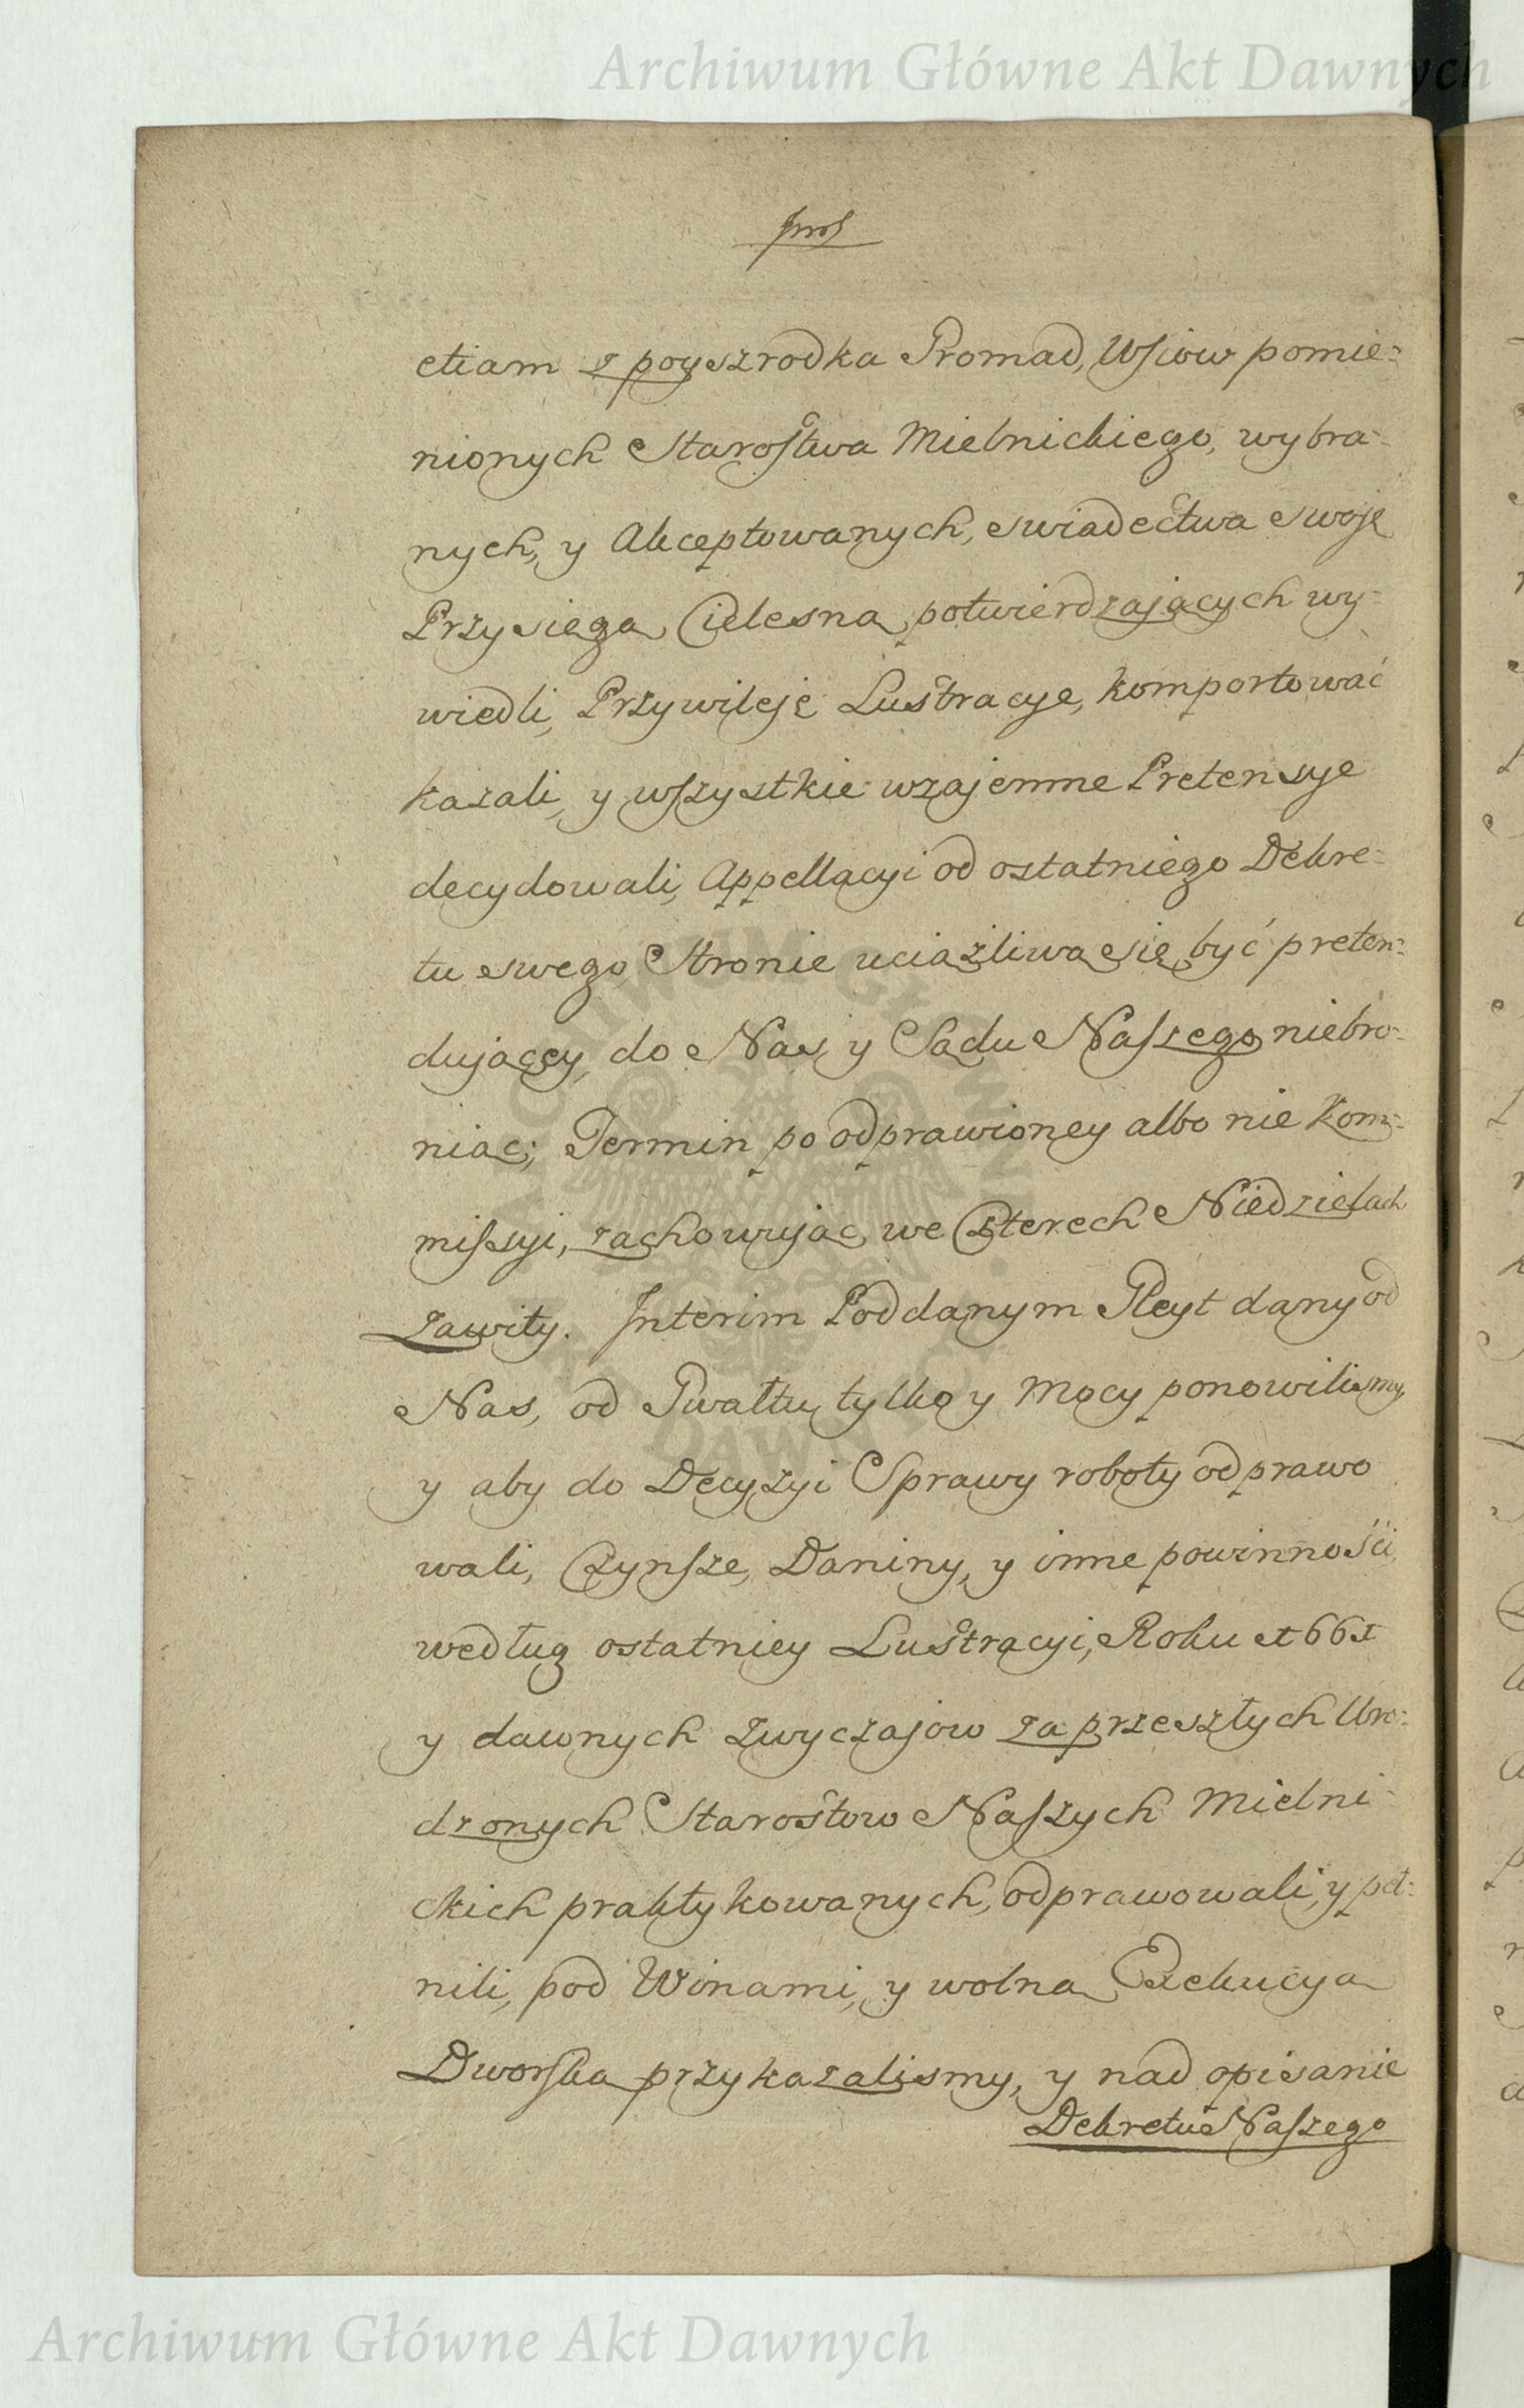 Archiwum Główne Akt Dawnych
etiam z poyszrodka Gromad, Wsiow pomie=
nionych Starostwa Mielnickiego, wybra=
nych, y Akceptowanych, swiadectwa swoje
Przysięgą Cielesną potwierdzaiących wy=
wiedli, Przywileje Lustracye, komportować
kazali, y wszystkie wzajemne Pretensye
decydowali, Appellacyi od ostatniego Dekre=
tu swego Stronie uciążliwą się być preten=
dującey, do Nas, y Sądu Naszego niebro=
niąc; Termin po odprawioney albo nie Kom=
missyi, zachowując, we Czterech Niedzielach
zawity. Interim Poddanym Gleyt dany od
Nas, od Gwałtu tylko y Mocy ponowilismy,
y aby do Decyzyi Sprawy roboty odprawo
wali, Czynsze, Daniny, y inne powinności,
według ostatniey Lustracyi, Roku 1661
y dawnych zwyczajow za przeszłych Uro=
dzonych Starostow Naszych Mielni=
ckich praktykowanych, odprawowali, y peł=
nili, pod Winami, y wolną Exekucyą
Dworską przykazalismy, y nad opisanie
Dekretu Naszego
Archiwum Główne Akt Dawnych